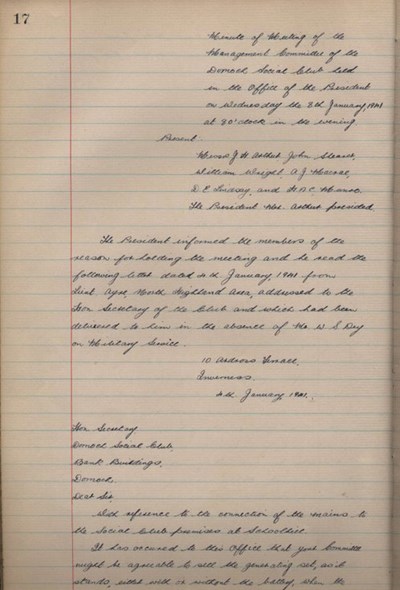 17
Minute of Meeting of the
Management Committee of the
Dornoch Social Club held
in the Office of the President
on Wednesday the 8th January, 1941
at 8 o'clock in the evening.
Present
Messrs J H Arthur, John
William Wright, A J
D E Lindsay, and H B C Munro.
The President Mr. Arthur presided.
The President informed the members of the
reason for holding the meeting and he read the
following letter dated 4th January 1941 from
Lieut. North Highland Area, addressed to the
Hon Secretary of the Club and which had been
delivered to him in the absence of Mr W S Dey
on Military Service.
10 Ardross Terrace,
Inverness.
4th January 1941.
Hon. Secretary
Dornoch Social Club,
Bank Buildings,
Dornoch.
Dear Sir,
With reference to the connection of the mains to
the Social Club premises at Schoolhill
It has occurred to this Office that your Committee
might be agreeable to sell the generating set, as it
stands, either with or without the battery, when the